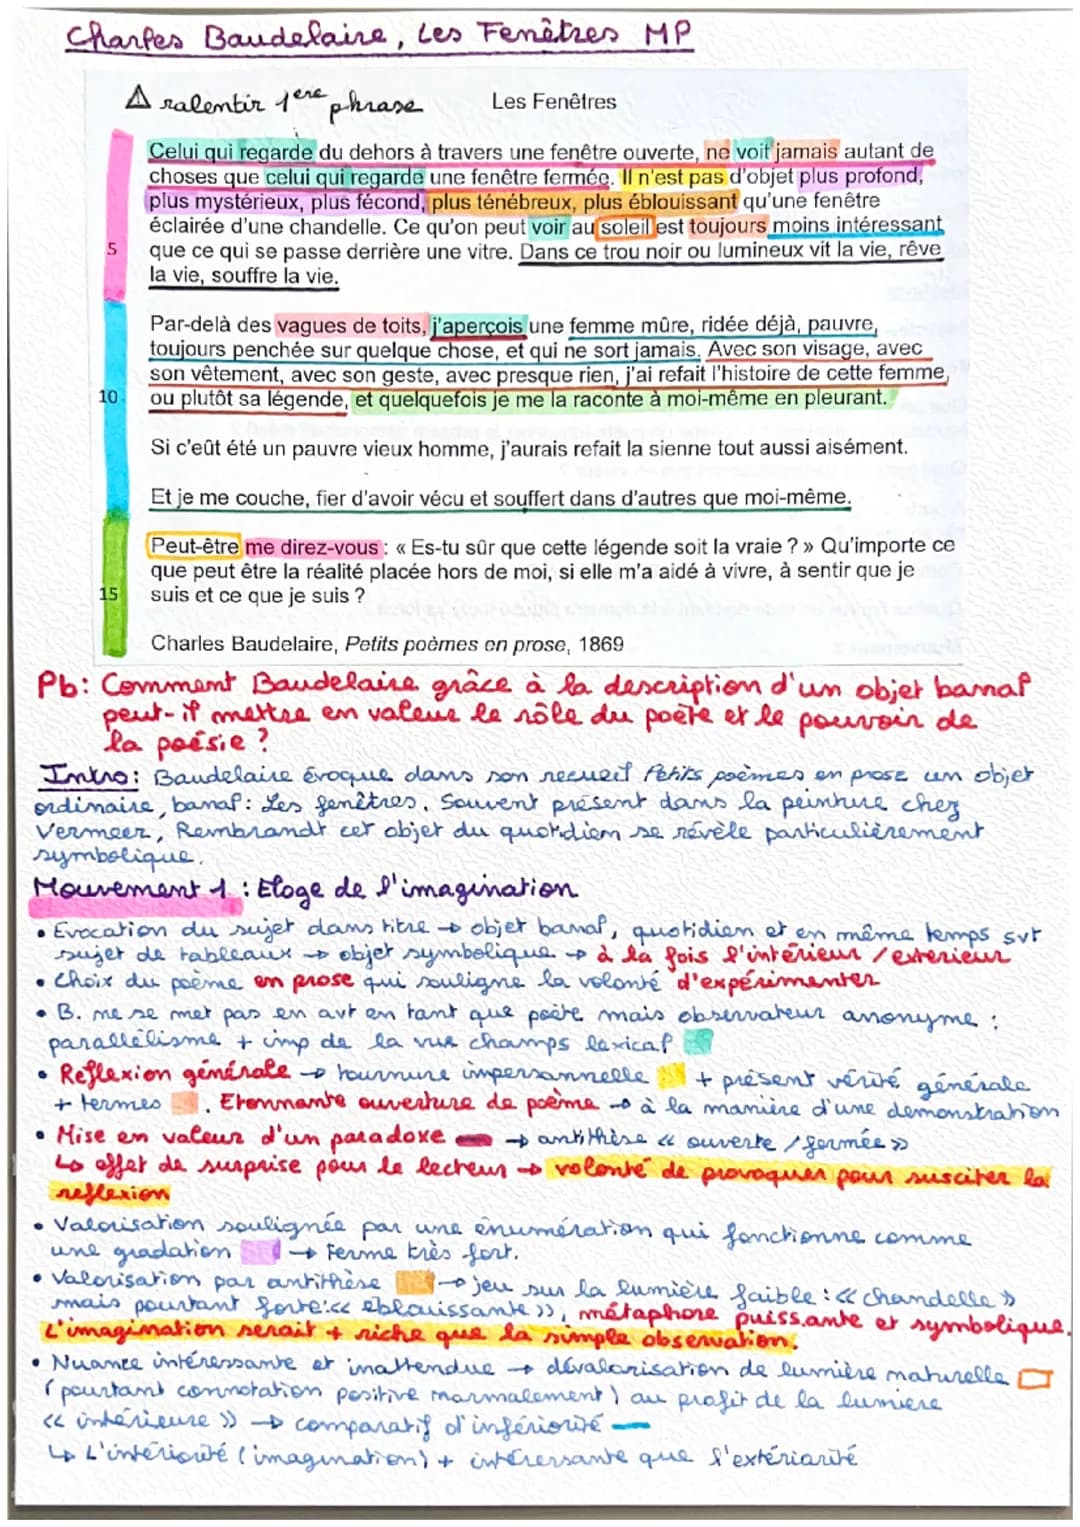 Charles Baudelaire, Les Fenêtres MP
⚠ ralentir 1ere phrase
Les Fenêtres
Celui qui regarde du dehors à travers une fenêtre ouverte, ne voit jamais autant de
choses que celui qui regarde une fenêtre fermée. Il n'est pas d'objet plus profond,
plus mystérieux, plus fécond, plus ténébreux, plus éblouissant qu'une fenêtre
éclairée d'une chandelle. Ce qu'on peut voir au soleil est toujours moins intéressant
5 que ce qui se passe derrière une vitre. Dans ce trou noir ou lumineux vit la vie, rêve
la vie, souffre la vie.
Par-delà des vagues de toits, j'aperçois une femme mûre, ridée déjà, pauvre,
toujours penchée sur quelque chose, et qui ne sort jamais. Avec son visage, avec
son vêtement, avec son geste, avec presque rien, j'ai refait l'histoire de cette femme,
10 ou plutôt sa légende, et quelquefois je me la raconte à moi-même en pleurant.
Si c'eût été un pauvre vieux homme, j'aurais refait la sienne tout aussi aisément.
Et je me couche, fier d'avoir vécu et souffert dans d'autres que moi-même.
Peut-être me direz-vous : « Es-tu sûr que cette légende soit la vraie ? » Qu'importe ce
que peut être la réalité placée hors de moi, si elle m'a aidé à vivre, à sentir que je
15 suis et ce que je suis ?
Charles Baudelaire, Petits poèmes en prose, 1869
Pb: Comment Baudelaire grâce à la description d'un objet banal
peut-il mettre en valeur le rôle du poète et le pouvoir de
la poésie ?
Intro: Baudelaire évoque dans son recueil Petits poèmes en prose un objet
ordinaire, banal: Les fenêtres. Souvent présent dans la peinture chez
Vermeer, Rembrandt cet objet du quotidien se révèle particulièrement
symbolique.
Mouvement 1 : Eloge de l'imagination
• Evocation du sujet dans titre → objet banal, quotidien et en même temps svt
sujet de tableaux → objet symbolique → à la fois l'intérieur / exterieur
• Choix du poème en prose qui souligne la volonté d'expérimenter
• B. ne se met pas en avt en tant que poète mais observateur anonyme :
parallélisme + imp de la vue champs lexical
• Reflexion générale → tournure impersonnelle + présent vérité générale
+ termes . Etonnante ouverture de poème → à la manière d'une demonstration
• Mise en valeur d'un paradoxe → antithèse « ouverte / fermée »
↳ effet de surprise pour le lecteur → volonté de provoquer pour susciter la
reflexion
• Valorisation soulignée par une énumération qui fonctionne comme
une gradation → Ferme très fort.
• Valorisation par antithèse → jeu sur la lumière faible : « chandelle »
mais pourtant forte: « eblouissante », métaphore puissante et symbolique.
L'imagination serait + riche que la simple observation.
• Nuance intéressante et inattendue → dévalorisation de lumière naturelle
(pourtant connotation positive normalement) au profit de la lumière
« intérieure » → comparatif d'infériorité
↳ L'intériorité (imagination) + intéressante que l'extériorité